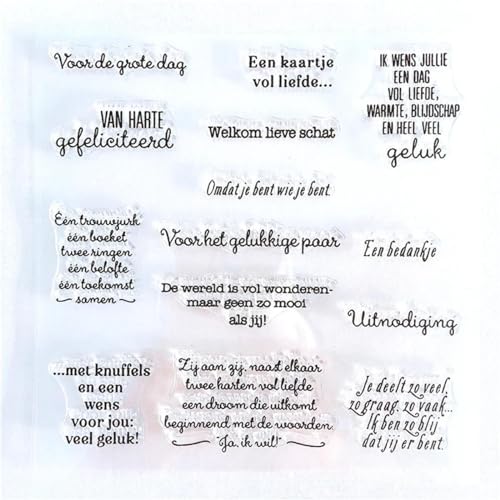 Voor de grote dag
Een kaartje
vol liefde...
IK WENS JULLIE
EEN DAG
VOL LIEFDE,
WARMTE, BLIJDSCHAP
EN HEEL VEEL
geluk
VAN HARTE
gefeliciteerd
Welkom lieve schat
Omdat je bent wie je bent.
Eén trouwjurk
één boeket
twee ringen
één belofte
één toekomst
samen
Voor het gelukkige paar
Een bedankje
De wereld is vol wonderen-
maar geen zo mooi
als jij!
Uitnodiging
...met knuffels
en een
wens
voor jou:
veel geluk!
Zij aan zij, naast elkaar
twee harten vol liefde
een droom die uitkomt
beginnend met de woorden.
"Ja, ik wil!"
Je deelt zo veel,
zo graag, zo vaak...
Ik ben zo blij
dat jij er bent.